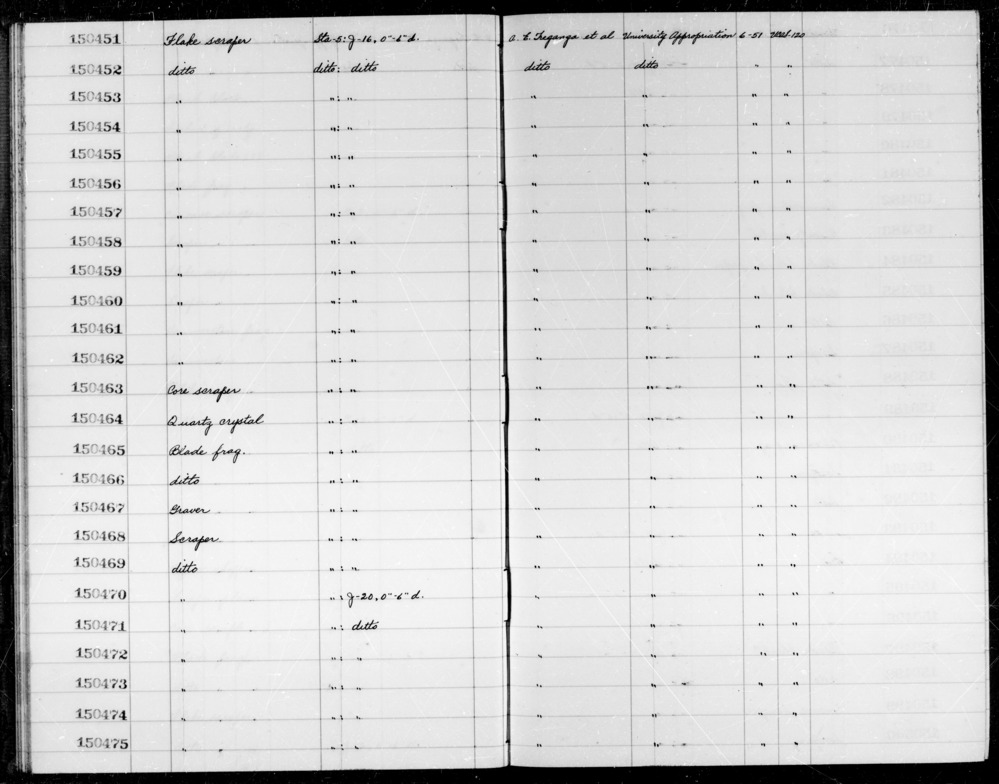 150451 Flake scraper Sta-5: J-16, 0"-6" d. A. E. Treganza et al University Appropriation 6-51 Uest 120
150452 ditto ditto: ditto ditto ditto " "
150453 " ": " " " " "
150454 " ": " " " " "
150455 " ": " " " " "
150456 " ": " " " " "
150457 " ": " " " " "
150458 " ": " " " " "
150459 " ": " " " " "
150460 " ": " " " " "
150461 " ": " " " " "
150462 " ": " " " " "
150463 Core scraper ": " " " " "
150464 Quartz crystal ": " " " " "
150465 Blade frag. ": " " " " "
150466 ditto ": " " " " "
150467 Graver ": " " " " "
150468 Scraper ": " " " " "
150469 ditto ": " " " " "
150470 " ": J-20, 0"-6" d. " " " "
150471 " ": ditto " " " "
150472 " ": " " " " "
150473 " ": " " " " "
150474 " ": " " " " "
150475 " ": " " " " "